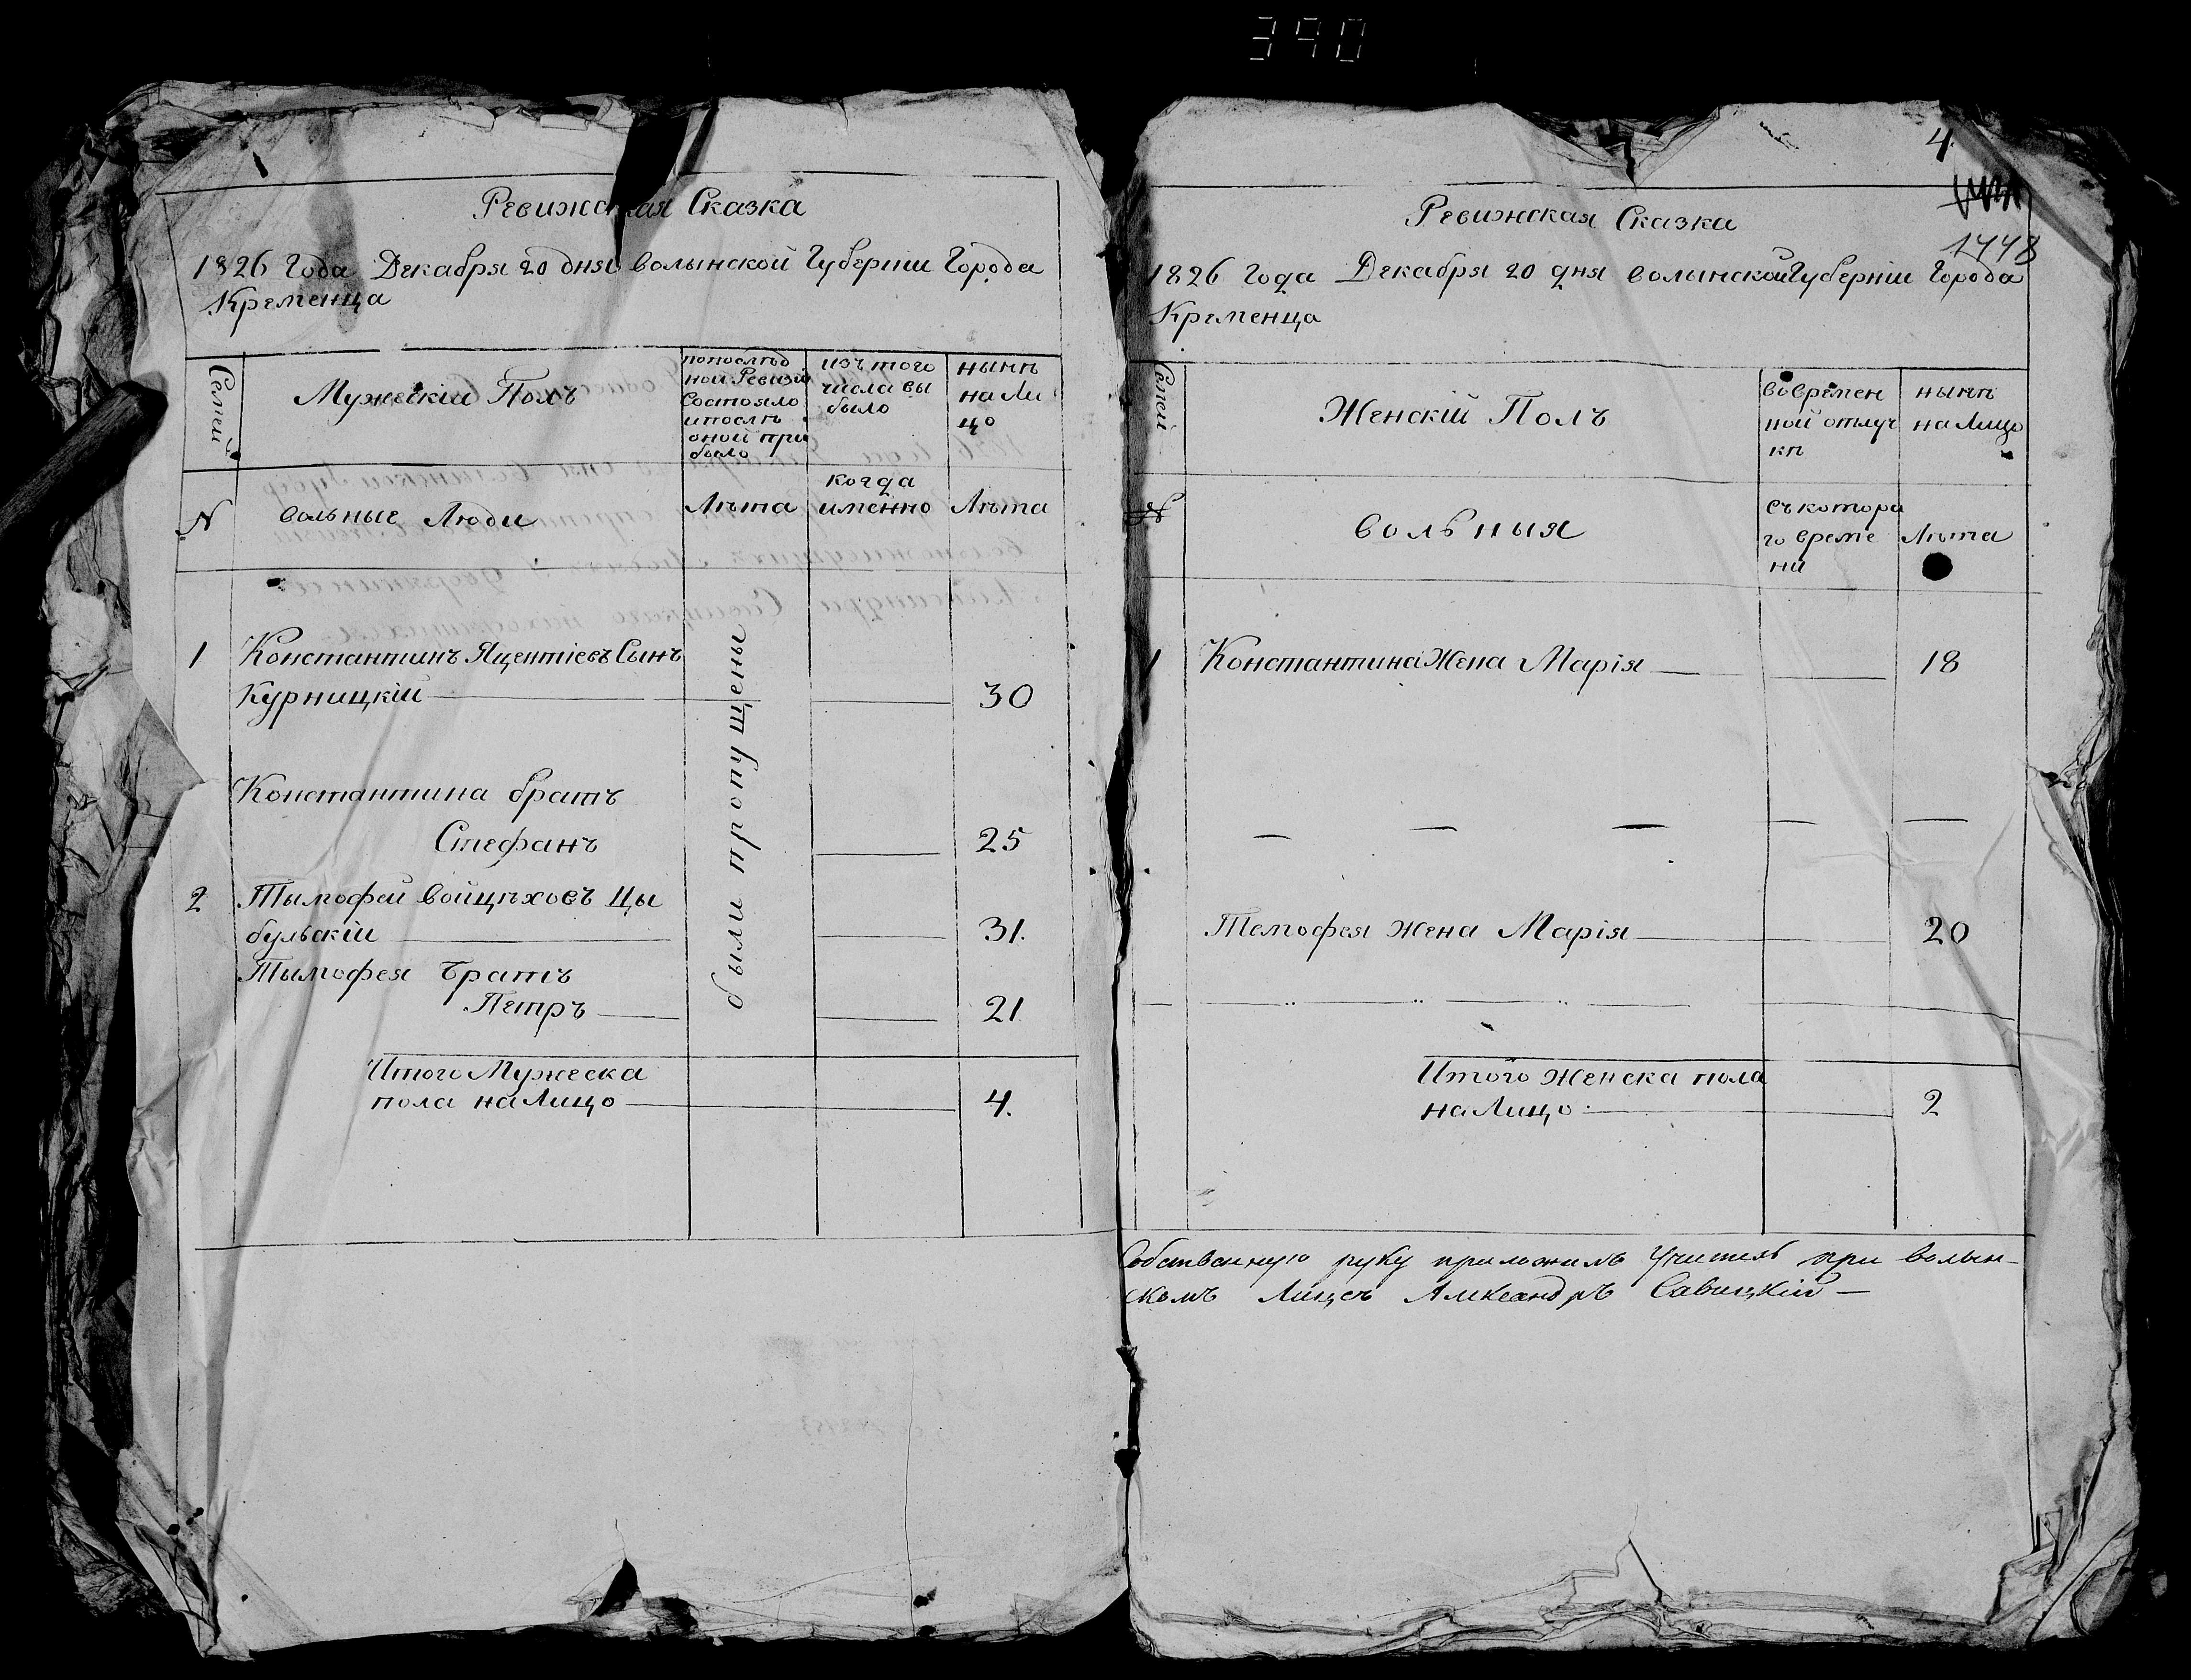 390
Ревижская Сказка
1826 Года Декабря 20 дня волынской Губернии Города
Кременца
Семей
Мужескій Полъ
попослѣд
ной Ревизіи
состояло
ипослѣ
оной при
было
изъ того
числа вы
было
нынѣ
на Ли
цо
№
вольные Люди
Лѣта
когда
именно
Лѣта
были пропущены
1 Константинъ Яцентіевъ Сынъ
Курницкій 30
Константина братъ
Стефанъ 25
2 Тымофей войцѣховъ Цы
бульскій 31.
Тымофея братъ
Петръ 21
Итого Мужеска
пола на Лицо 4.
4.
1778
Ревижская Сказка
1826 Года Декабря 20 дня волынской Губерніи Города
Кременца
Семей
Женскій Полъ
вовремен
ной отлуч
кѣ
нынѣ
на Лицо
№
вольныя
съкотора
го време
ни
Лѣта
1 Константина Жена Марія 18
Темофея жена Марія 20
Итого Женска пола
на Лицо 2
Собственную руку приложилъ Учитель при волын-
скомъ Лицеѣ Александръ Савицкій